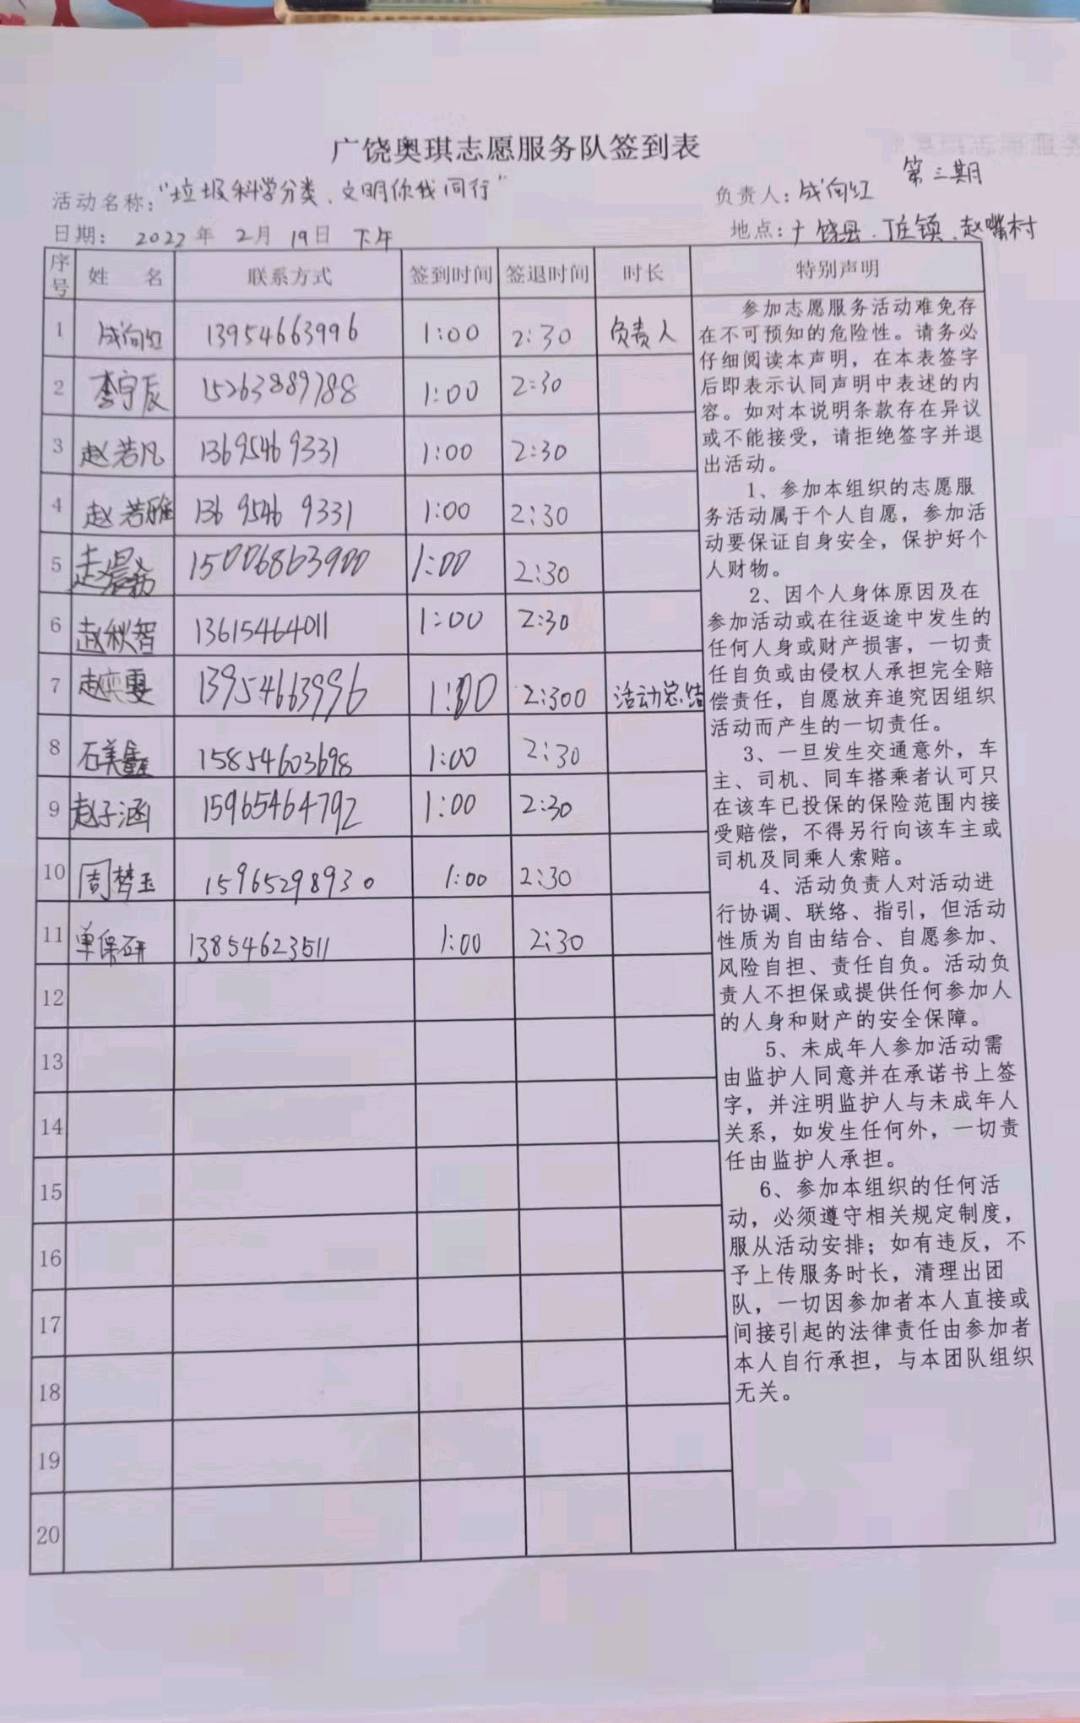 广饶奥琪志愿服务队签到表
第三期
活动名称："垃圾科学分类、文明你我同行" 负责人：成向红
日期： 2022年 2月 19日 下午 地点：广饶县.丁庄镇.赵嘴村
序号 姓 名 联系方式 签到时间 签退时间 时长 特别声明
1 成向红 13954663996 1:00 2:30 负责人
2 李宇辰 15263889788 1:00 2:30
3 赵若凡 13695469331 1:00 2:30
4 赵若雅 136 9546 9331 1:00 2:30
5 赵晨 15006863900 1:00 2:30
6 赵秋智 13615464011 1:00 2:30
7 赵奕雯 13954663996 1:00 2:300 活动总结
8 石美鑫 15854603698 1:00 2:30
9 赵子涵 15965464792 1:00 2:30
10 周梦玉 15965298930 1:00 2:30
11 单保研 13854623511 1:00 2:30
12
13
14
15
16
17
18
19
20
参加志愿服务活动难免存
在不可预知的危险性。请务必
仔细阅读本声明，在本表签字
后即表示认同声明中表述的内
容。如对本说明条款存在异议
或不能接受，请拒绝签字并退
出活动。
1、参加本组织的志愿服
务活动属于个人自愿，参加活
动要保证自身安全，保护好个
人财物。
2、因个人身体原因及在
参加活动或在往返途中发生的
任何人身或财产损害，一切责
任自负或由侵权人承担完全赔
偿责任，自愿放弃追究因组织
活动而产生的一切责任。
3、一旦发生交通意外，车
主、司机、同车搭乘者认可只
在该车已投保的保险范围内接
受赔偿，不得另行向该车主或
司机及同乘人索赔。
4、活动负责人对活动进
行协调、联络、指引，但活动
性质为自由结合、自愿参加、
风险自担、责任自负。活动负
责人不担保或提供任何参加人
的人身和财产的安全保障。
5、未成年人参加活动需
由监护人同意并在承诺书上签
字，并注明监护人与未成年人
关系，如发生任何外，一切责
任由监护人承担。
6、参加本组织的任何活
动，必须遵守相关规定制度，
服从活动安排；如有违反，不
予上传服务时长，清理出团
队，一切因参加者本人直接或
间接引起的法律责任由参加者
本人自行承担，与本团队组织
无关。